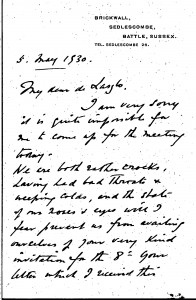 BRICKWALL,
SEDLESCOMBE,
BATTLE, SUSSEX.
TEL. SEDLESCOMBE 24.
5. May 1930.
My dear de Laszlo.
I am very sorry
it is quite impossible for
me to come up for the meeting
today.
We are both rather crocks,
having had bad throats &
weeping colds, and the state
of our noses & eyes will I
fear prevent us from availing
ourselves of your very kind
invitation for the 8th. Your
letter which I received this